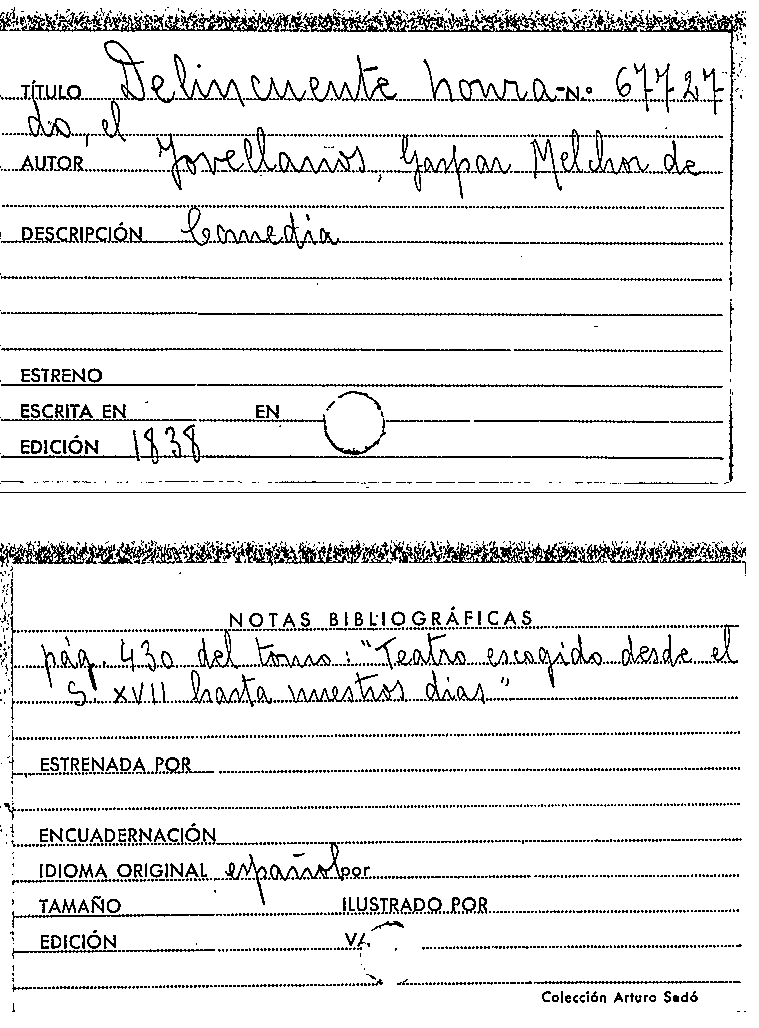 TÍTULO Delincuente honra- N.º 67727
do, el
AUTOR Jovellanos, Gaspar Melchor de
DESCRIPCIÓN Comedia
ESTRENO
ESCRITA EN EN
EDICIÓN 1838
NOTAS BIBLIOGRÁFICAS
pág. 430 del tomo: "Teatro escogido desde el
S. XVII hasta nuestros dias"
ESTRENADA POR
ENCUADERNACIÓN
IDIOMA ORIGINAL español por
TAMAÑO ILUSTRADO POR
EDICIÓN
Colección Arturo Sedó